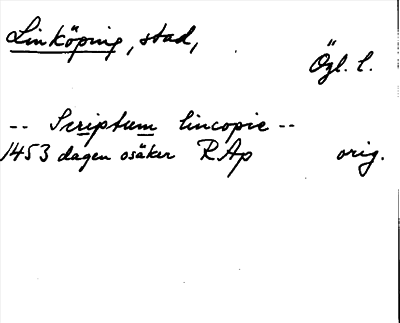 Linköping, stad,
Ögl. l.
-- Scriptum lincopie --
1453 dagen osäker RAp orig.